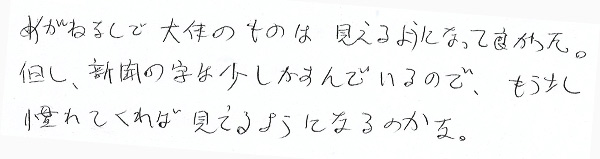 めがねなしで大体のものは見えるようになって良かった。
但し、新聞の字は少しかすんでいるので、もう少し
慣れてくれば見えるようになるのかな。